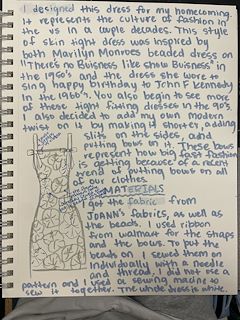 I designed this dress for my homecoming.
It represents the culture of fashion in
the US in a couple decades. This style
of skin tight dress was inspired by
both Marilyn Monroes beaded dress on
"There's no Buisness like show Buisness" in
the 1950's and the dress she wore to
sing happy birthday to John F Kennedy
in the 1960's. You also begin to see more
of these tight fitting dresses in the 90's.
I also decided to add my own modern
twist on it by making it shorter, adding
slits on the sides and
putting bows on it. These bows
represent how big fast fashion
is getting because of a recent
trend of putting bows on all
of our clothes.
MATERIALS
I got the fabric from
JOANN's fabrics, as well as
the beads. I used ribbon
from walmar for the straps
and the bows. To put the
beads on I sewed them on
individually with a needle
and thread. I did not use a
pattern and I used a sewing machine to
sew it together. The whole dress is white.